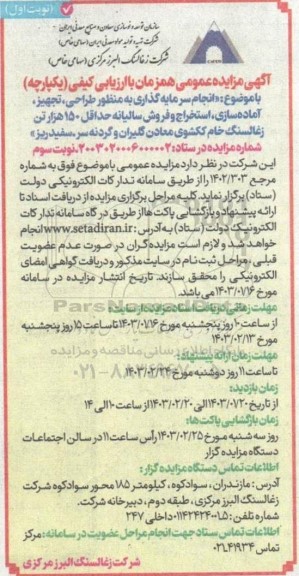 (نوبت اول)
سازمان توسعه و نوسازی معادن و صنایع معدنی ایران
شرکت تهیه و تولید مواد معدنی ایران (سهامی خاص)
شرکت زغالسنگ البرز مرکزی (سهامی خاص)
آگهی مزایده عمومی همزمان با ارزیابی کیفی (یکپارچه)
با موضوع: «انجام سرمایه گذاری به منظور طراحی، تجهیز،
آماده سازی، استخراج و فروش سالیانه حداقل ۱۵۰ هزار تن
زغالسنگ خام ککشوی معادن گلیران و گردنه سر، سفیدریز»
شماره مزایده در ستاد: ۲۰۰۳۰۲۰۰۰۶۰۰۰۰۰۲، نوبت سوم
این شرکت در نظر دارد مزایده عمومی با موضوع فوق به شماره
مرجع ۱۴۰۲/۳۰۳ را از طریق سامانه تدارکات الکترونیکی دولت
(ستاد) برگزار نماید. کلیه مراحل برگزاری مزایده از دریافت اسناد تا
ارائه پیشنهاد و بازگشایی پاکت ها از طریق درگاه سامانه تدارکات
الکترونیک دولت (ستاد) به آدرس: www.setadiran.ir انجام
خواهد شد و لازم است مزایده گران در صورت عدم عضویت
قبلی، مراحل ثبت نام در سایت مذکور و دریافت گواهی امضای
الکترونیکی را محقق سازند. تاریخ انتشار مزایده در سامانه
مورخ ۱۴۰۳/۰۱/۱۶ می باشد.
مهلت زمانی دریافت اسناد مزایده از سایت:
از ساعت ۱۰ روز پنجشنبه مورخ ۱۴۰۳/۰۱/۱۶ تا ساعت ۱۵ روز پنجشنبه
مورخ ۱۴۰۳/۰۲/۱۳
مهلت زمان ارائه پیشنهاد:
تا ساعت ۱۱ روز دوشنبه مورخ ۱۴۰۳/۰۲/۲۴
زمان بازدید:
از تاریخ ۱۴۰۳/۰۱/۲۰ الی ۱۴۰۳/۰۲/۲۰ از ساعت ۱۰ الی ۱۴
زمان بازگشایی پاکت ها:
روز سه شنبه مورخ ۱۴۰۳/۰۲/۲۵ رأس ساعت ۱۱ در سالن اجتماعات
دستگاه مزایده گزار
اطلاعات تماس دستگاه مزایده گزار:
آدرس: مازندران، سوادکوه، کیلومتر ۱۸۵ محور سوادکوه شرکت
زغالسنگ البرز مرکزی، طبقه دوم، دبیرخانه شرکت.
شماره تلفن: ۵-۰۱۱۴۲۴۲۴۰۰۱ داخلی ۲۴۷
اطلاعات تماس ستاد جهت انجام مراحل عضویت در سامانه: مرکز
تماس ۴۱۹۳۴-۰۲۱
شرکت زغالسنگ البرز مرکزی